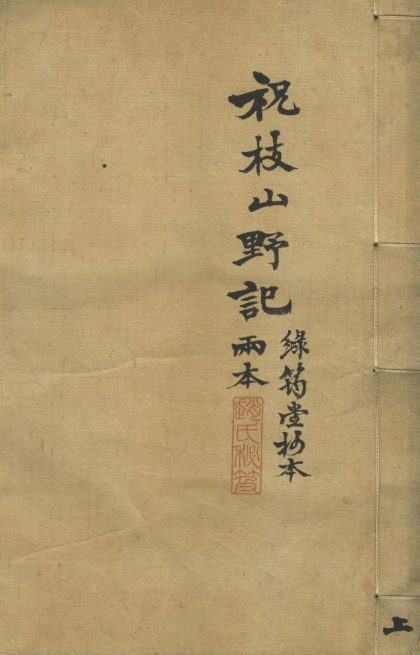 祝枝山野記
綠筠堂抄本
兩本
趙氏秘笈
上